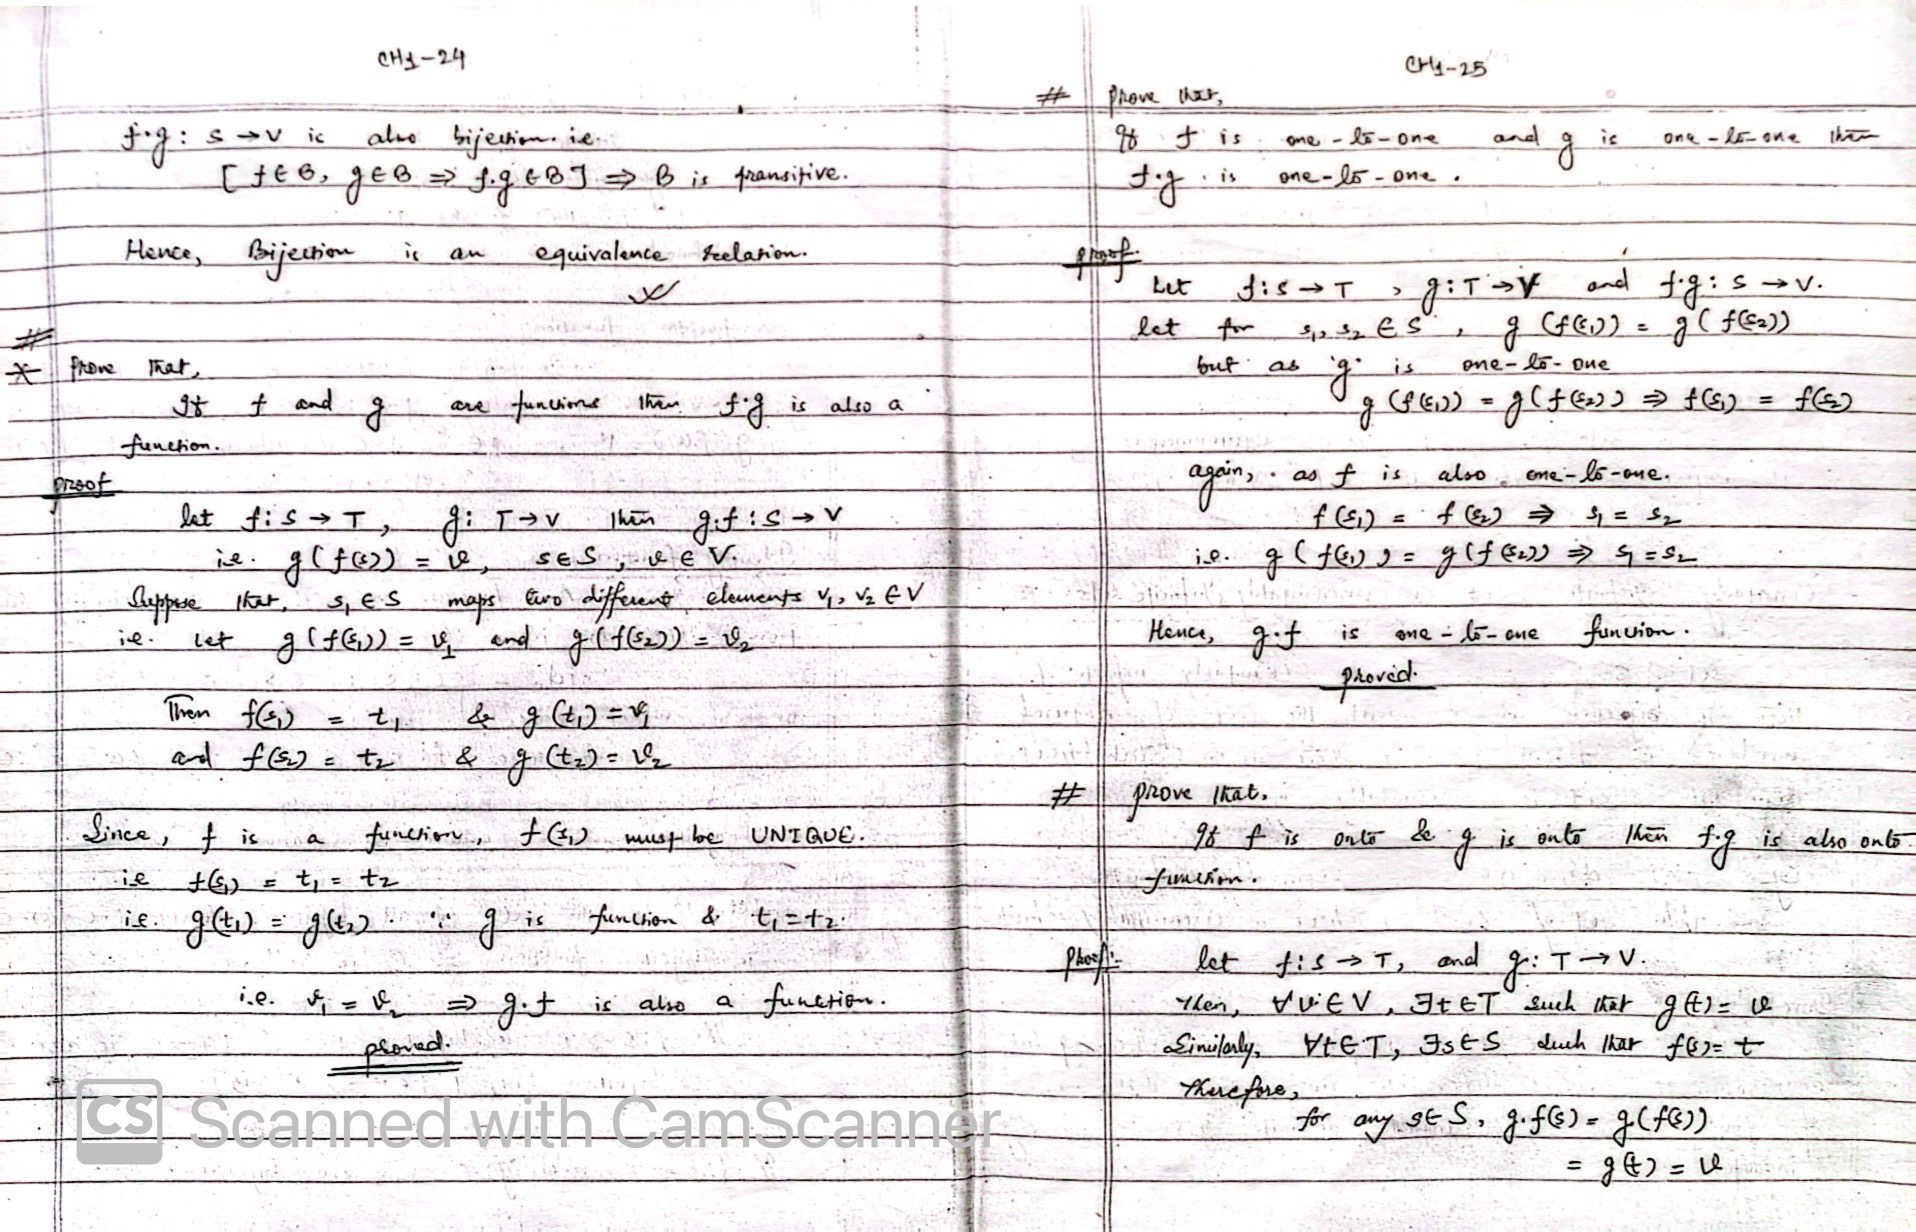 CH1-24
f·g : S → V is also bijection. i.e.
[ f ∈ B, g ∈ B ⇒ f.g ∈ B ] ⇒ B is transitive.
Hence, Bijection is an equivalence relation.
#
* Prove that,
If f and g are functions then f·g is also a
function.
proof
let f: S → T, g: T → V then g.f : S → V
i.e. g(f(s)) = v, s ∈ S, v ∈ V.
Suppose that, s₁ ∈ S maps two different elements v₁, v₂ ∈ V
i.e. Let g(f(s₁)) = v₁ and g(f(s₂)) = v₂
Then f(s₁) = t₁ & g(t₁) = v₁
and f(s₂) = t₂ & g(t₂) = v₂
Since, f is a function, f(s₁) must be UNIQUE.
i.e f(s₁) = t₁ = t₂
i.e. g(t₁) = g(t₂) ∵ g is function & t₁ = t₂.
i.e. v₁ = v₂ ⇒ g.f is also a function.
proved.
CS Scanned with CamScanner
CH1-25
# Prove that,
If f is one-to-one and g is one-to-one then
f·g is one-to-one.
proof.
Let f: S → T, g: T → V and f·g : S → V.
let for s₁, s₂ ∈ S, g(f(s₁)) = g(f(s₂))
but as 'g' is one-to-one
g(f(s₁)) = g(f(s₂)) ⇒ f(s₁) = f(s₂)
again, as f is also one-to-one.
f(s₁) = f(s₂) ⇒ s₁ = s₂
i.e. g(f(s₁)) = g(f(s₂)) ⇒ s₁ = s₂
Hence, g·f is one-to-one function.
proved.
# prove that,
If f is onto & g is onto then f·g is also onto
function.
Proof:-
let f: S → T, and g: T → V.
Then, ∀ v ∈ V, ∃ t ∈ T such that g(t) = v
Similarly, ∀ t ∈ T, ∃ s ∈ S such that f(s) = t
Therefore,
for any s ∈ S, g.f(s) = g(f(s))
= g(t) = v